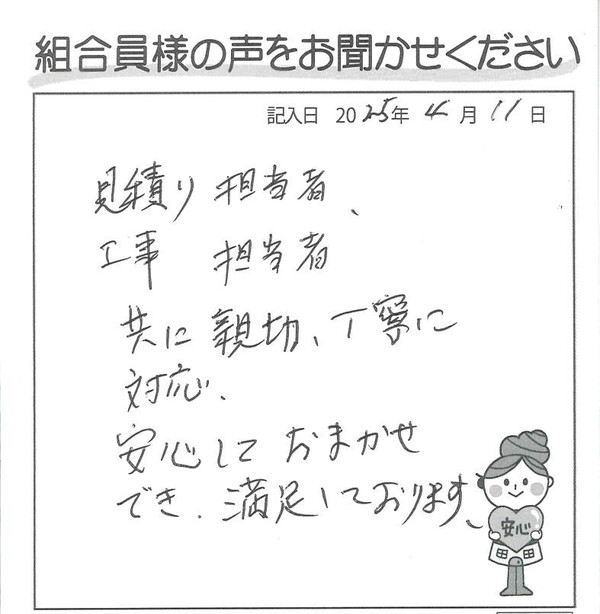 組合員様の声をお聞かせください
記入日 2025年 4月 11日
見積り 担当者、
工事 担当者
共に 親切、丁寧に
対応、
安心して おまかせ
でき、満足しております、
安心